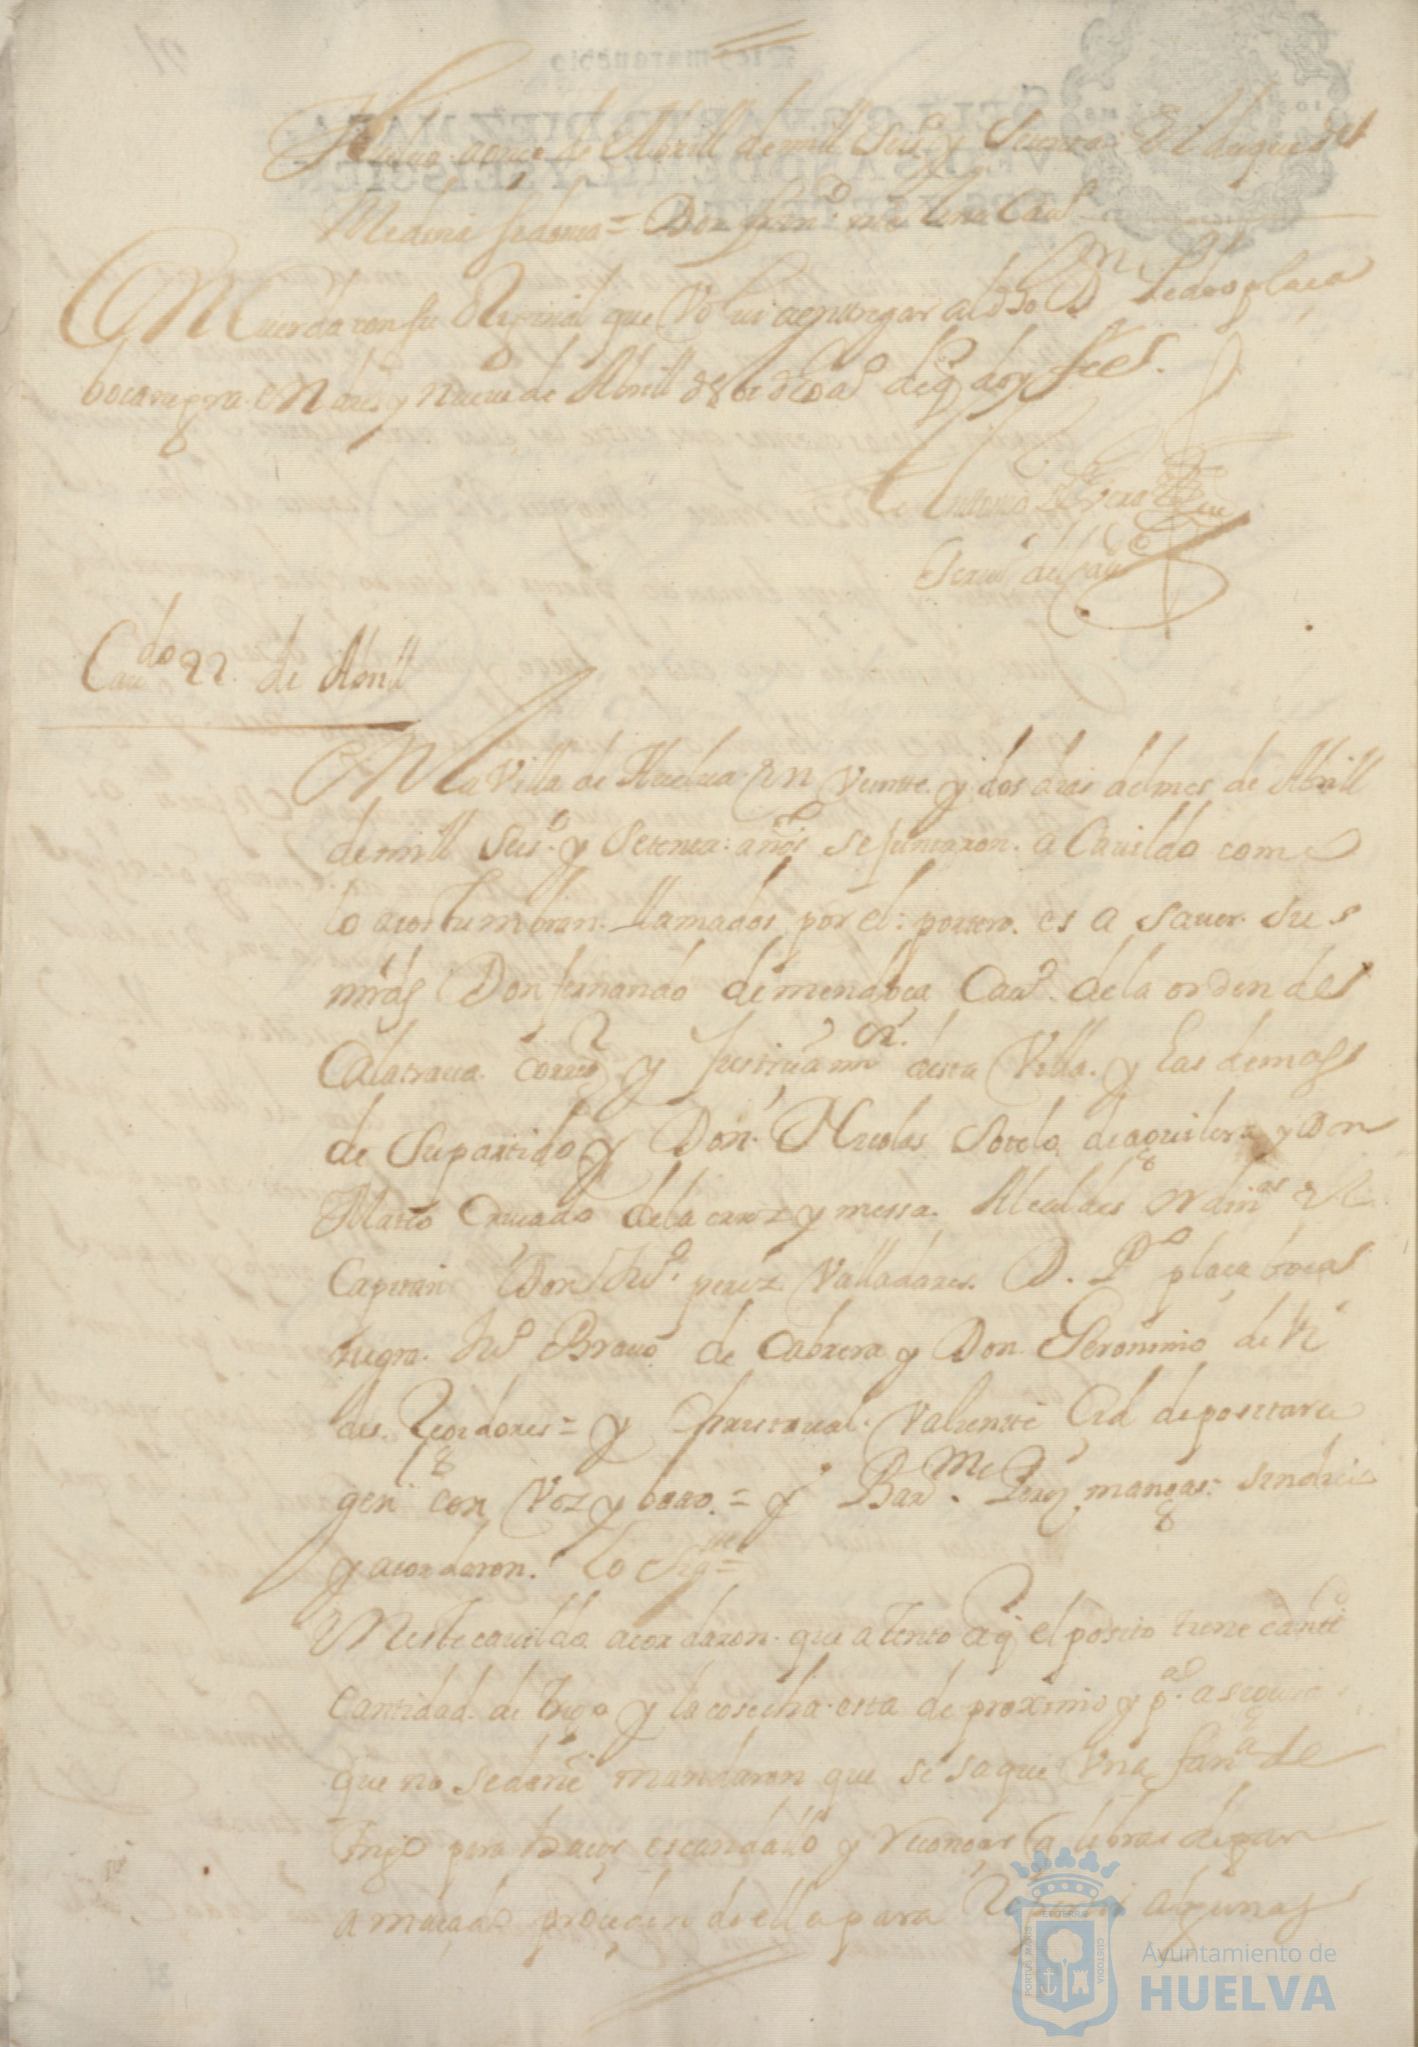 Huelua a once de Abrill de mill Seisº y Setenta. El duque de
Medina Sidonia = Don franº Molina Cauº
Concuerda con su original que Volui a entregar al dho D Pedro plaça
bocanegra. En dies y nueue de Abrill de de qe doy fee.
Antonio
Scriuº del Cauº
Caudo 22. de Abrill
En la Villa de Huelua En Veinte y dos dias del mes de Abrill
de mill Seisº y Setenta: años se juntaron. a Cauildo como
lo acostumbran. llamados por el: portero. es a sauer. sus
mrds Don fernando de mendoça Cauº. de la orden de
Calatraua. correxr y Justicia mr desta Villa. y Las demas
de Su partido y Don. Nicolas Sotelo de aguilera y Don
Marco Cruzado de la cruz y messa. Alcaldes Ordinos el
Capitan Don Juº. perez Valladares. D. Pº plaça bocas
negra. Juº Brauo de Cabrera y Don Geronimo de Vi
des. Regidores = y christoual. Valiente Cid depositario
genl con Voz y boto. = y Barme. Perez mangas: sindico
y acordaron. lo Sigte =
En este cauildo acordaron. que atento a q el posito tiene canti
cantidad. de trigo y la cosecha. esta de proximo y pa. asegurar
que no se dañe mandaron que se saque Vna fana de
trigo para hacer escandallo y reconocer las libras de pan
amasado proceden de ella para algunas
Ayuntamiento de
HUELVA
PORTUS MARIS
ET TERRAE
CUSTODIA